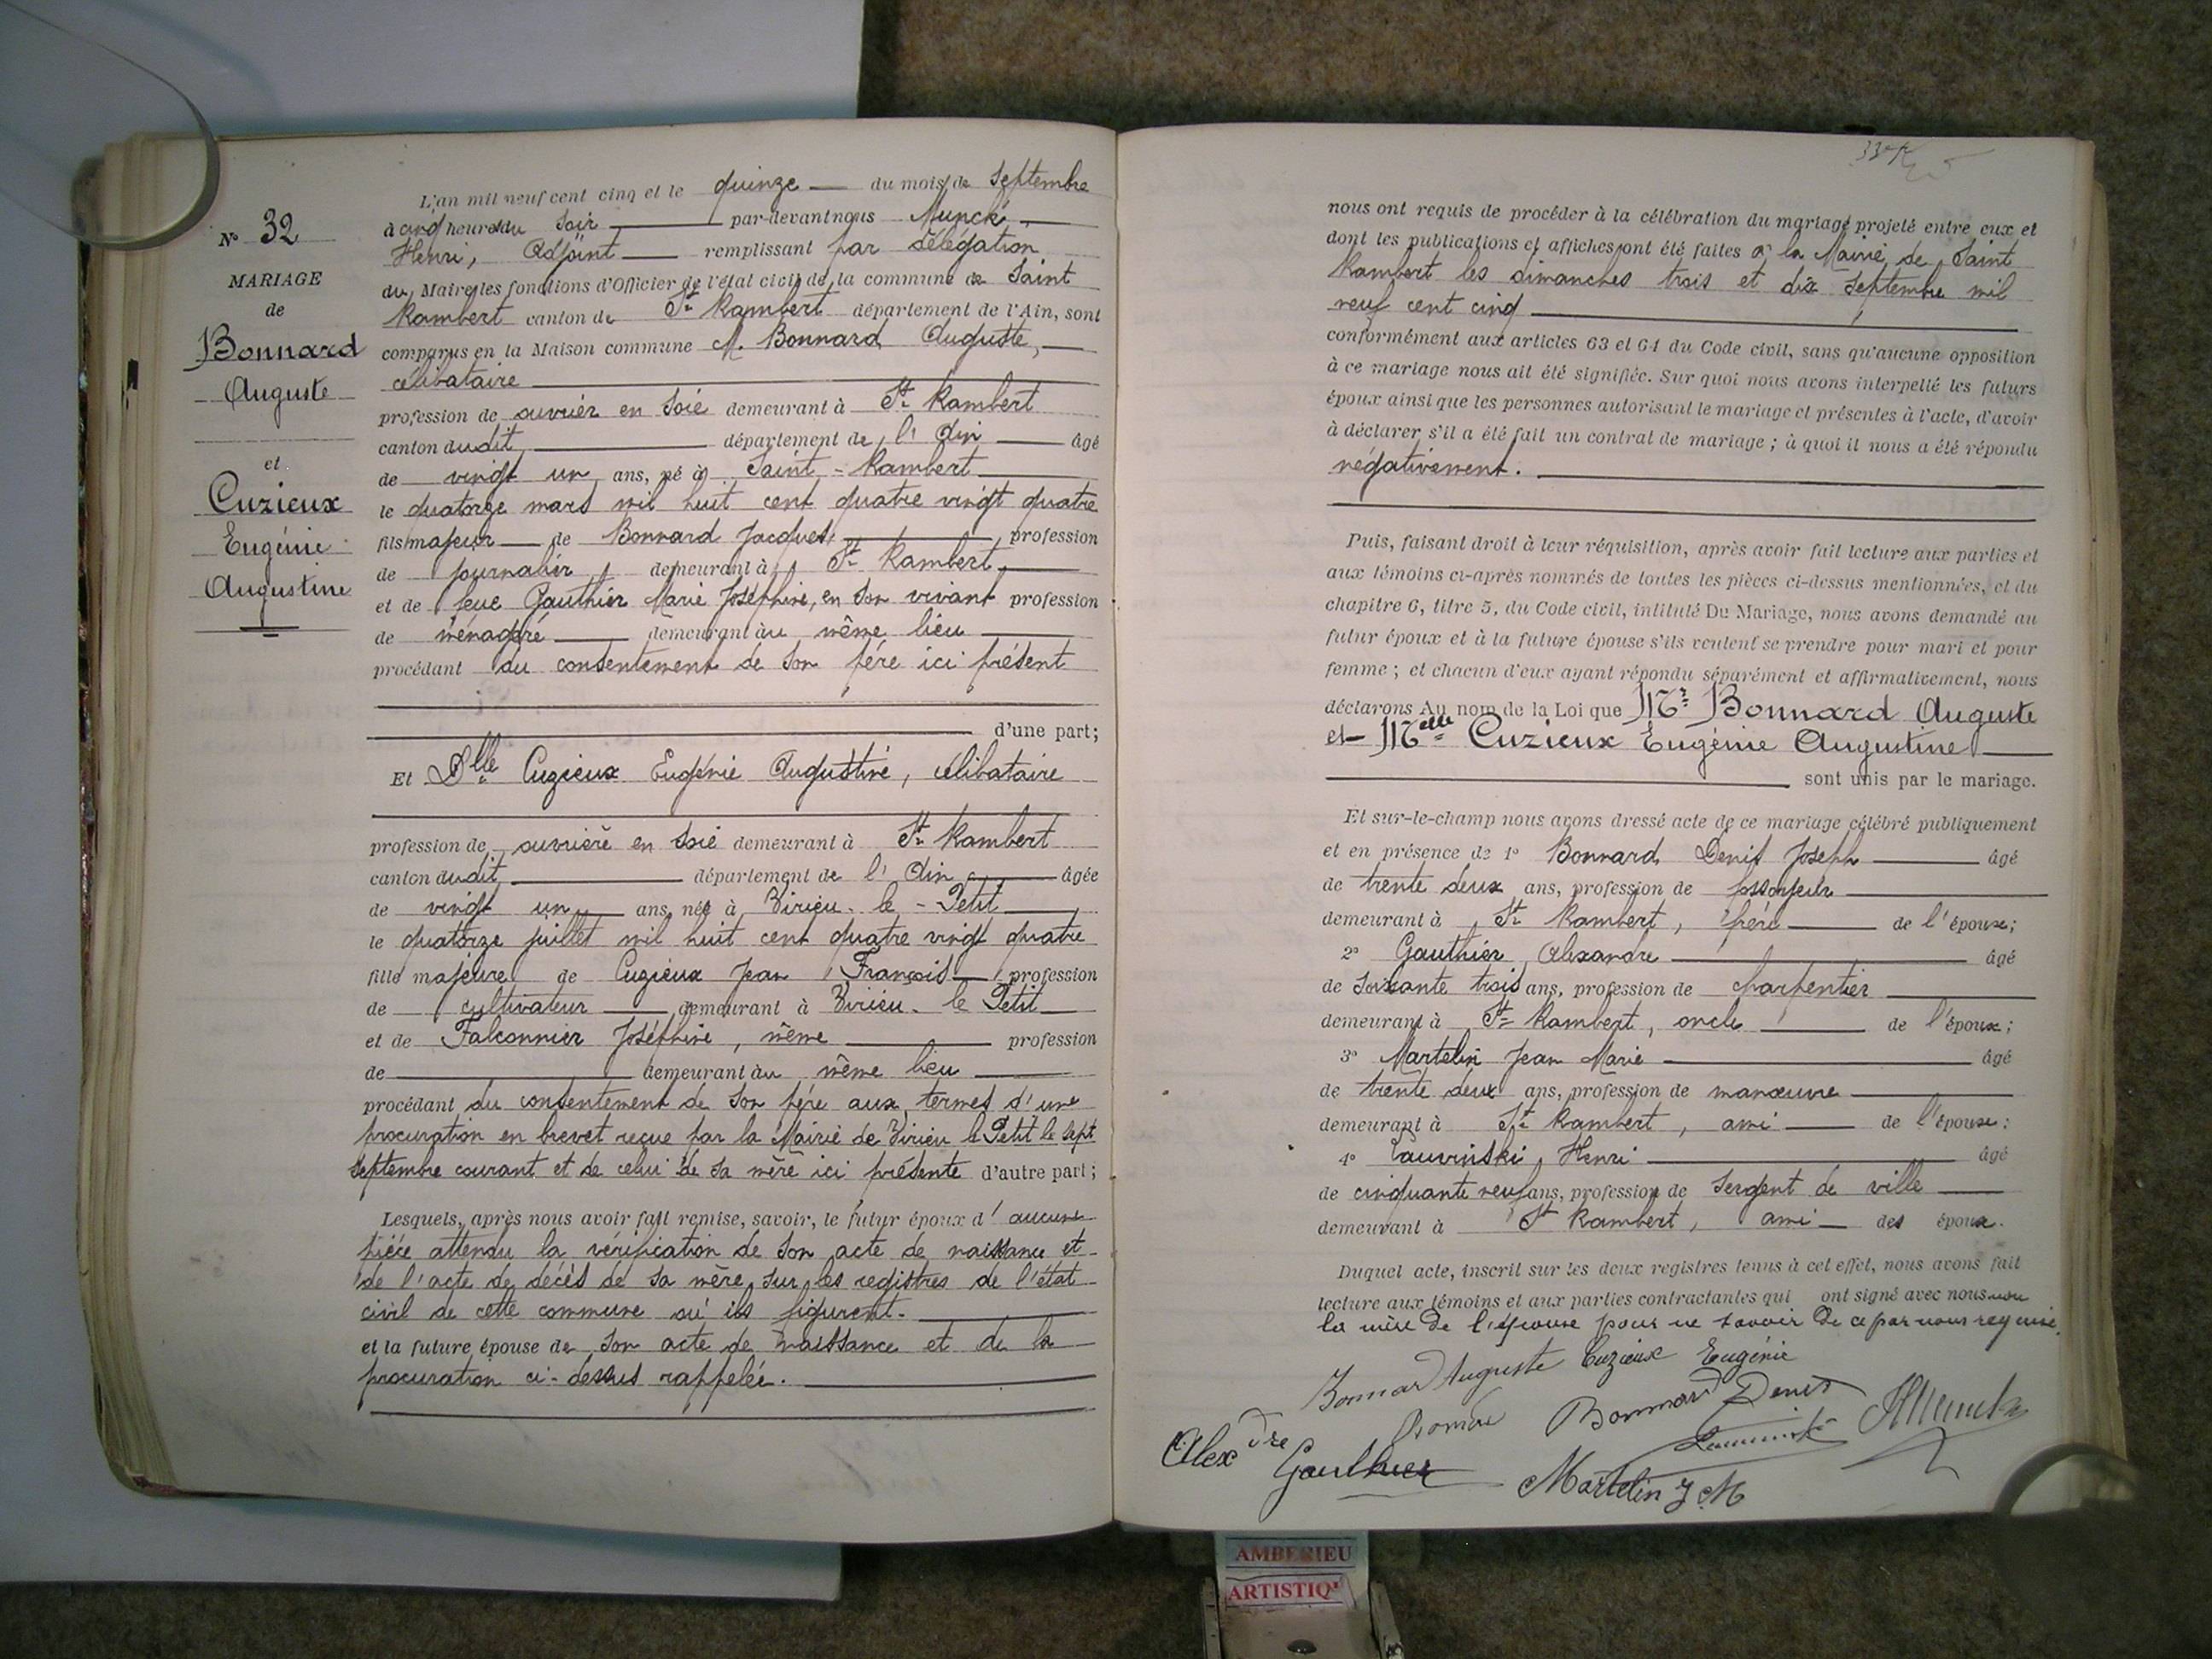 N° 32
MARIAGE
de
Bonnard
Auguste
et
Cuzieux
Eugénie
Augustine
L'an mil neuf cent cinq et le quinze du mois de Septembre
à cinq heures du soir par-devant nous Munck,
Henri, Adjoint remplissant par délégation
du Maire les fonctions d'Officier de l'état civil de la commune de Saint
Rambert canton de St Rambert département de l'Ain, sont
comparus en la Maison commune M. Bonnard Auguste,
célibataire
profession de ouvrier en soie demeurant à St Rambert
canton dudit département de l'Ain âgé
de vingt un ans, né à Saint-Rambert
le quatorze mars mil huit cent quatre vingt quatre
fils majeur de Bonnard Jacques, profession
de journalier, demeurant à St Rambert,
et de feue Gauthier Marie Joséphine, en son vivant profession
de ménagère demeurant au même lieu
procédant du consentement de son père ici présent
d'une part;
Et Dlle Cuzieux Eugénie Augustine, célibataire
profession de ouvrière en soie demeurant à St Rambert
canton dudit département de l'Ain âgée
de vingt un ans, née à Virieu-le-Petit
le quatorze juillet mil huit cent quatre vingt quatre
fille majeure de Cuzieux Jean François profession
de cultivateur demeurant à Virieu-le Petit
et de Falconnier Joséphine, même profession
de demeurant au même lieu
procédant du consentement de son père aux termes d'une
procuration en brevet reçue par la Mairie de Virieu le Petit le sept
septembre courant et de celui de sa mère ici présente d'autre part;
Lesquels, après nous avoir fait remise, savoir, le futur époux d'aucune
pièce attendu la vérification de son acte de naissance et
de l'acte de décès de sa mère sur les registres de l'état
civil de cette commune où ils figurent.
et la future épouse de son acte de naissance et de la
procuration ci-dessus rappelée.
nous ont requis de procéder à la célébration du mariage projeté entre eux et
dont les publications et affiches ont été faites à la Mairie de Saint
Rambert les dimanches trois et dix Septembre mil
neuf cent cinq
conformément aux articles 63 et 64 du Code civil, sans qu'aucune opposition
à ce mariage nous ait été signifiée. Sur quoi nous avons interpellé les futurs
époux ainsi que les personnes autorisant le mariage et présentes à l'acte, d'avoir
à déclarer s'il a été fait un contrat de mariage; à quoi il nous a été répondu
négativement.
Puis, faisant droit à leur réquisition, après avoir fait lecture aux parties et
aux témoins ci-après nommés de toutes les pièces ci-dessus mentionnées, et du
chapitre 6, titre 5, du Code civil, intitulé Du Mariage, nous avons demandé au
futur époux et à la future épouse s'ils veulent se prendre pour mari et pour
femme; et chacun d'eux ayant répondu séparément et affirmativement, nous
déclarons Au nom de la Loi que Mr Bonnard Auguste
et Melle Cuzieux Eugénie Augustine
sont unis par le mariage.
Et sur-le-champ nous avons dressé acte de ce mariage célébré publiquement
et en présence de 1° Bonnard Denis Joseph âgé
de trente deux ans, profession de fossoyeur
demeurant à St Rambert, frère de l'épouse;
2° Gauthier Alexandre âgé
de soixante trois ans, profession de charpentier
demeurant à St Rambert, oncle de l'époux;
3° Martelin Jean Marie âgé
de trente deux ans, profession de manœuvre
demeurant à St Rambert, ami de l'épouse;
4° Henri âgé
de cinquante neuf ans, profession de sergent de ville
demeurant à St Rambert, ami des époux.
Duquel acte, inscrit sur les deux registres tenus à cet effet, nous avons fait
lecture aux témoins et aux parties contractantes qui ont signé avec nous non
la mère de l'épouse pour ne savoir de ce par nous requise.
Bonnard Auguste Cuzieux Eugénie
Bonnard Denis
Alexdre Gauthier
Martelin J M
AMBERIEU
ARTISTIQ